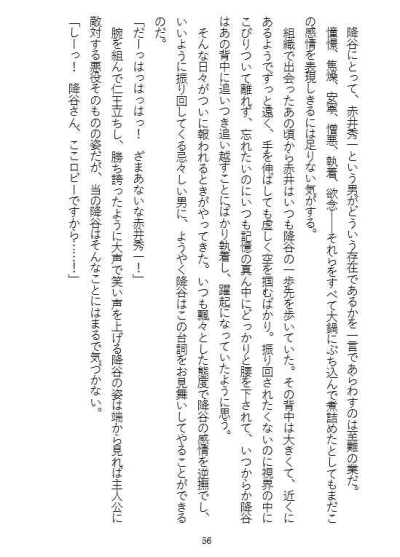 降谷にとって、赤井秀一という男がどういう存在であるかを一言であらわすのは至難の業だ。
憧憬、焦燥、安寧、憎悪、執着、欲念――それらをすべて大鍋にぶち込んで煮詰めたとしてもまだこ
の感情を表現しきるには足りない気がする。
組織で出会ったあの頃から赤井はいつも降谷の一歩先を歩いていた。その背中は大きくて、近くに
あるようでずっと遠く、手を伸ばしても虚しく空を掴むばかり。振り回されたくないのに視界の中に
こびりついて離れず、忘れたいのにいつも記憶の真ん中にどっかりと腰を下されて、いつからか降谷
はあの背中に追いつき追い越すことにばかり執着し、躍起になっていたように思う。
そんな日々がついに報われるときがやってきた。いつも飄々とした態度で降谷の感情を逆撫でし、
いいように振り回してくる忌々しい男に、ようやく降谷はこの台詞をお見舞いしてやることができる
のだ。
「だーっはっはっはっ！　ざまあないな赤井秀一！」
腕を組んで仁王立ちし、勝ち誇ったように大声で笑い声を上げる降谷の姿は端から見れば主人公に
敵対する悪役そのものの姿だが、当の降谷はそんなことにはまるで気づかない。
「しーっ！　降谷さん、ここロビーですから……！」
56